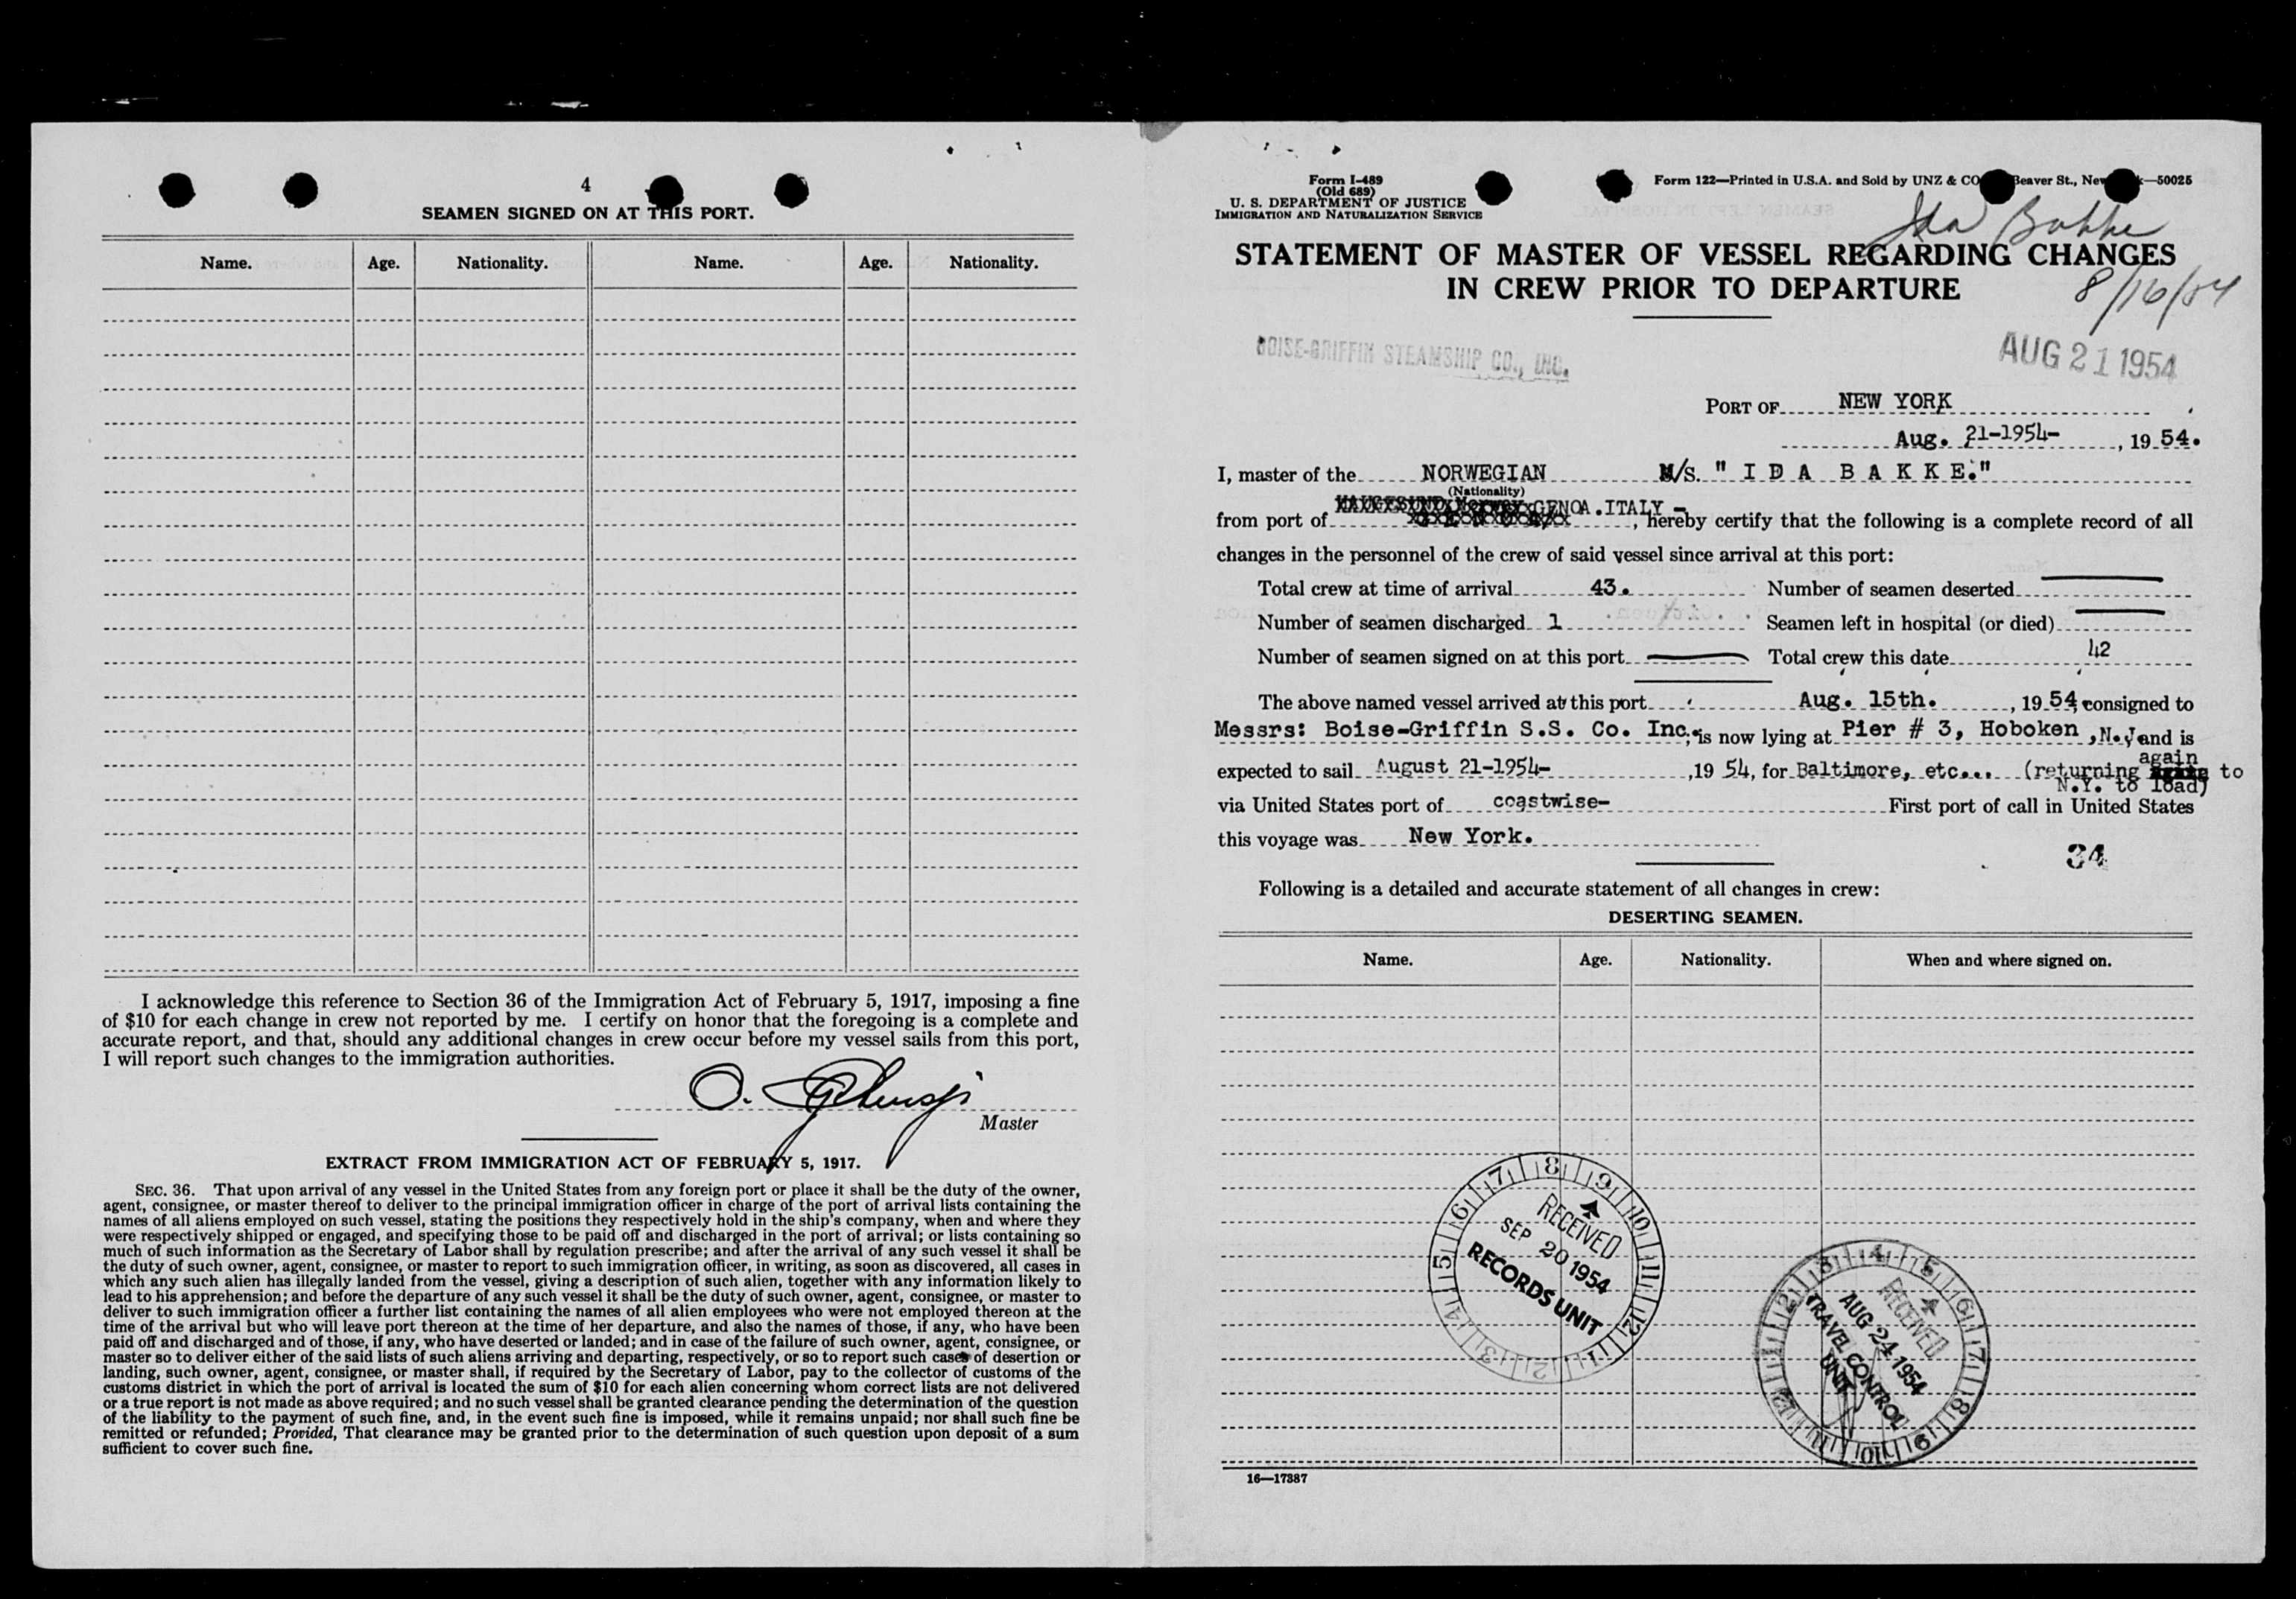 4
SEAMEN SIGNED ON AT THIS PORT.
Name. Age. Nationality. Name. Age. Nationality.
I acknowledge this reference to Section 36 of the Immigration Act of February 5, 1917, imposing a fine
of $10 for each change in crew not reported by me. I certify on honor that the foregoing is a complete and
accurate report, and that, should any additional changes in crew occur before my vessel sails from this port,
I will report such changes to the immigration authorities.
O.
Master
EXTRACT FROM IMMIGRATION ACT OF FEBRUARY 5, 1917.
SEC. 36. That upon arrival of any vessel in the United States from any foreign port or place it shall be the duty of the owner,
agent, consignee, or master thereof to deliver to the principal immigration officer in charge of the port of arrival lists containing the
names of all aliens employed on such vessel, stating the positions they respectively hold in the ship's company, when and where they
were respectively shipped or engaged, and specifying those to be paid off and discharged in the port of arrival; or lists containing so
much of such information as the Secretary of Labor shall by regulation prescribe; and after the arrival of any such vessel it shall be
the duty of such owner, agent, consignee, or master to report to such immigration officer, in writing, as soon as discovered, all cases in
which any such alien has illegally landed from the vessel, giving a description of such alien, together with any information likely to
lead to his apprehension; and before the departure of any such vessel it shall be the duty of such owner, agent, consignee, or master to
deliver to such immigration officer a further list containing the names of all alien employees who were not employed thereon at the
time of the arrival but who will leave port thereon at the time of her departure, and also the names of those, if any, who have been
paid off and discharged and of those, if any, who have deserted or landed; and in case of the failure of such owner, agent, consignee, or
master so to deliver either of the said lists of such aliens arriving and departing, respectively, or so to report such cases of desertion or
landing, such owner, agent, consignee, or master shall, if required by the Secretary of Labor, pay to the collector of customs of the
customs district in which the port of arrival is located the sum of $10 for each alien concerning whom correct lists are not delivered
or a true report is not made as above required; and no such vessel shall be granted clearance pending the determination of the question
of the liability to the payment of such fine, and, in the event such fine is imposed, while it remains unpaid; nor shall such fine be
remitted or refunded; Provided, That clearance may be granted prior to the determination of such question upon deposit of a sum
sufficient to cover such fine.
Form I-489
(Old 689)
U. S. DEPARTMENT OF JUSTICE
IMMIGRATION AND NATURALIZATION SERVICE
Form 122—Printed in U.S.A. and Sold by UNZ & CO Beaver St., New —50025
Ida Bakke
STATEMENT OF MASTER OF VESSEL REGARDING CHANGES
IN CREW PRIOR TO DEPARTURE
8/16/54
BOISE-GRIFFIN STEAMSHIP CO., INC.
AUG 21 1954
PORT OF NEW YORK
Aug. 21-1954-, 19 54.
I, master of the NORWEGIAN M/S. " I D A B A K K E."
(Nationality)
from port of GENOA.ITALY -, hereby certify that the following is a complete record of all
changes in the personnel of the crew of said vessel since arrival at this port:
Total crew at time of arrival 43. Number of seamen deserted
Number of seamen discharged 1 Seamen left in hospital (or died)
Number of seamen signed on at this port Total crew this date 42
The above named vessel arrived at this port Aug. 15th., 19 54, consigned to
Messrs: Boise-Griffin S.S. Co. Inc.; is now lying at Pier # 3, Hoboken ,N.J and is
expected to sail August 21-1954- ,19 54, for Baltimore, etc... (returning again to
N.Y. to load)
via United States port of coastwise- First port of call in United States
this voyage was New York.
34
Following is a detailed and accurate statement of all changes in crew:
DESERTING SEAMEN.
Name. Age. Nationality. When and where signed on.
7 8 9 10 11 12 1 2 3 4 5 6
RECEIVED
SEP 20 1954
RECORDS UNIT
3 4 5 6 7 8 9 10 11 12 1 2
RECEIVED
AUG 24 1954
TRAVEL CONTROL
UNIT
16—17387